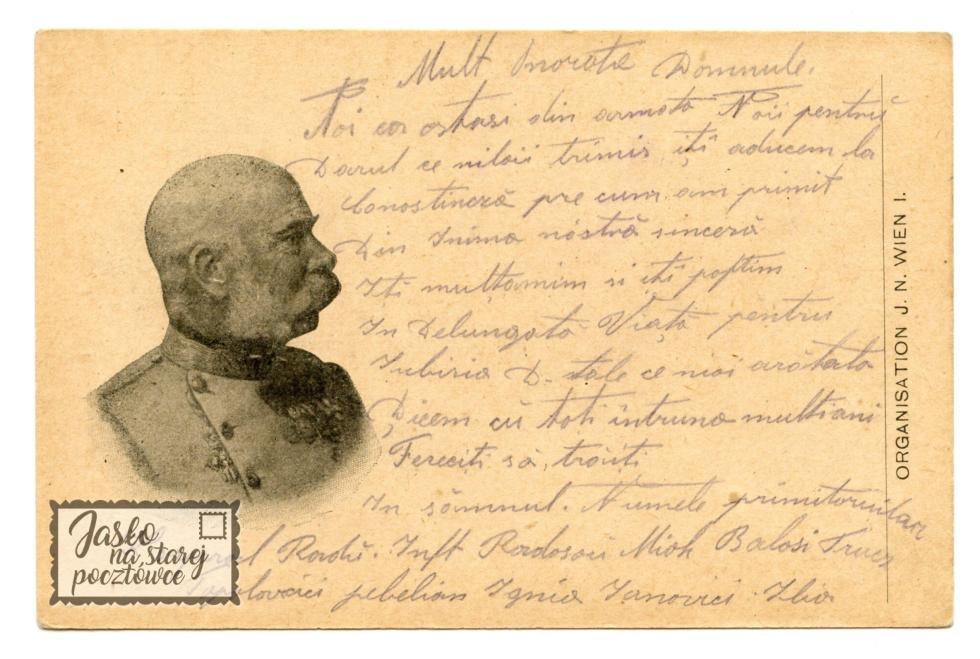 Mult Onorate Domnule.
Noi cor ostasi din armata Noii pentru
Darul ce niloii trimis iți aducem la
Conostincză pre cum am primit
Din Inima nóstră sinceră
Iti mulțamim si iti poftim
In Delungată Viață pentru
Iubiria D-tale ce noi arătata
Dicem cu toti intruna multiani
Fereciti să, trăiti
In sămnul. Numele primitorului
Radŭ. Inft Radosau Mioh Balosi
Ignia Ianovici Ilia
ORGANISATION J. N. WIEN I.
Jaśko
na starej
pocztówce